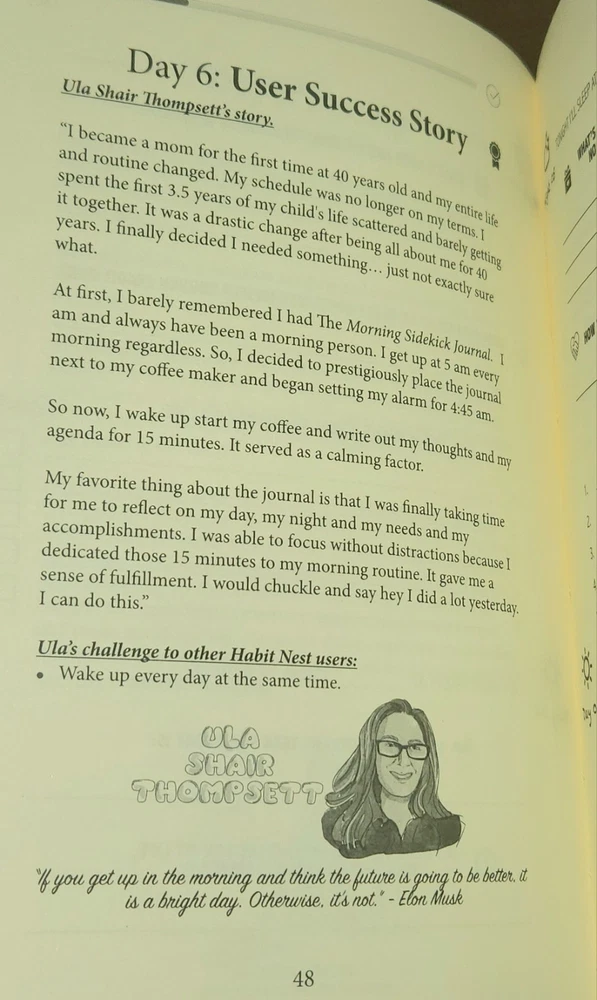 Day 6: User Success Story
Ula Shair Thompsett's story.
"I became a mom for the first time at 40 years old and my entire life
and routine changed. My schedule was no longer on my terms. I
spent the first 3.5 years of my child's life scattered and barely getting
it together. It was a drastic change after being all about me for 40
years. I finally decided I needed something... just not exactly sure
what.
At first, I barely remembered I had The Morning Sidekick Journal. I
am and always have been a morning person. I get up at 5 am every
morning regardless. So, I decided to prestigiously place the journal
next to my coffee maker and began setting my alarm for 4:45 am.
So now, I wake up start my coffee and write out my thoughts and my
agenda for 15 minutes. It served as a calming factor.
My favorite thing about the journal is that I was finally taking time
for me to reflect on my day, my night and my needs and my
accomplishments. I was able to focus without distractions because I
dedicated those 15 minutes to my morning routine. It gave me a
sense of fulfillment. I would chuckle and say hey I did a lot yesterday.
I can do this."
Ula's challenge to other Habit Nest users:
• Wake up every day at the same time.
ULA
SHAIR
THOMPSETT
"If you get up in the morning and think the future is going to be better, it
is a bright day. Otherwise, it's not." - Elon Musk
48
TONIGHT I'LL SLEEP AT
WHAT'S
HOW
1.
2.
3.